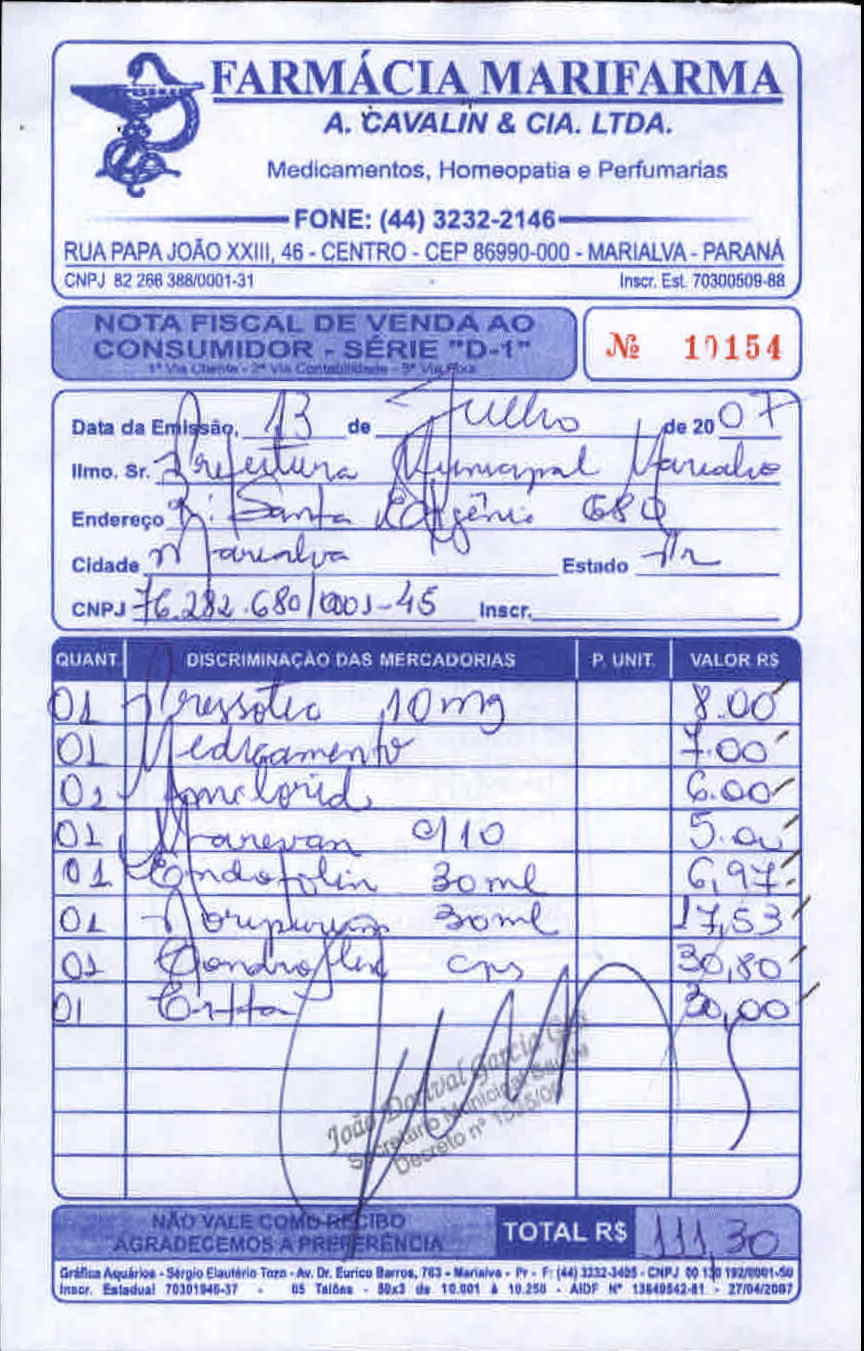 FARMÁCIA MARIFARMA
A. CAVALIN & CIA. LTDA.
Medicamentos, Homeopatia e Perfumarias
FONE: (44) 3232-2146
RUA PAPA JOÃO XXIII, 46 - CENTRO - CEP 86990-000 - MARIALVA - PARANÁ
CNPJ 82 266 388/0001-31 Inscr. Est. 70300509-88
NOTA FISCAL DE VENDA AO
CONSUMIDOR - SÉRIE "D-1"
1ª Via Cliente - 2ª Via Contabilidade - 3ª Via Fixa
Nº 10154
Data da Emissão, 13 de Julho de 2007
Ilmo. Sr. Prefeitura Municipal Marialva
Endereço R: Santa Efigênia 680
Cidade Marialva Estado Pr
CNPJ 76.282.680/0001-45 Inscr.
QUANT. DISCRIMINAÇÃO DAS MERCADORIAS P. UNIT. VALOR R$
01 Pressotec 10mg 8.00
01 Medicamento 7.00
02 Amelorid 6.00
01 Marevan c/10 5.00
01 Endofolin 30ml 6,97
01 Noripurum 30ml 17,53
01 Condroflex cps 30,80
01 30,00
João Dorival Garcia
Secretário Municipal Saúde
Decreto nº
NÃO VALE COMO RECIBO
AGRADECEMOS A PREFERÊNCIA
TOTAL R$ 111,30
Gráfica Aquários - Sérgio Elautério Tozo - Av. Dr. Eurico Barros, 763 - Marialva - Pr - F: (44) 3232-3405 - CNPJ 00 130 192/0001-50
Inscr. Estadual 70301946-37 - 05 Talões - 50x3 de 10.001 à 10.250 - AIDF Nº 13649542-81 - 27/04/2007